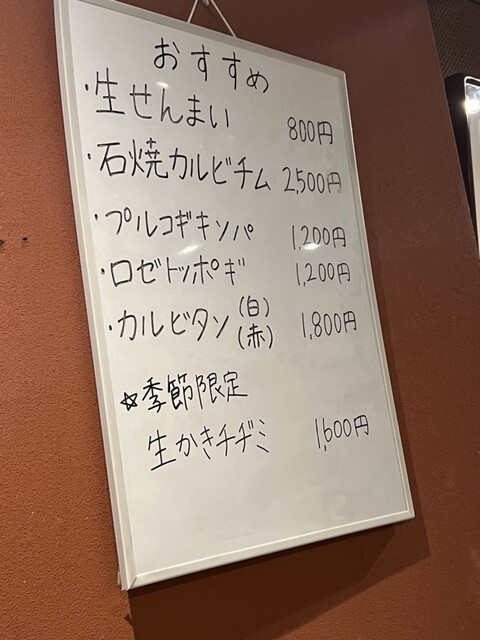 おすすめ
・生せんまい 800円
・石焼カルビチム 2,500円
・プルコギキンパ 1,200円
・ロゼトッポギ 1,200円
・カルビタン (白) (赤) 1,800円
☆季節限定
生かきチヂミ 1,600円